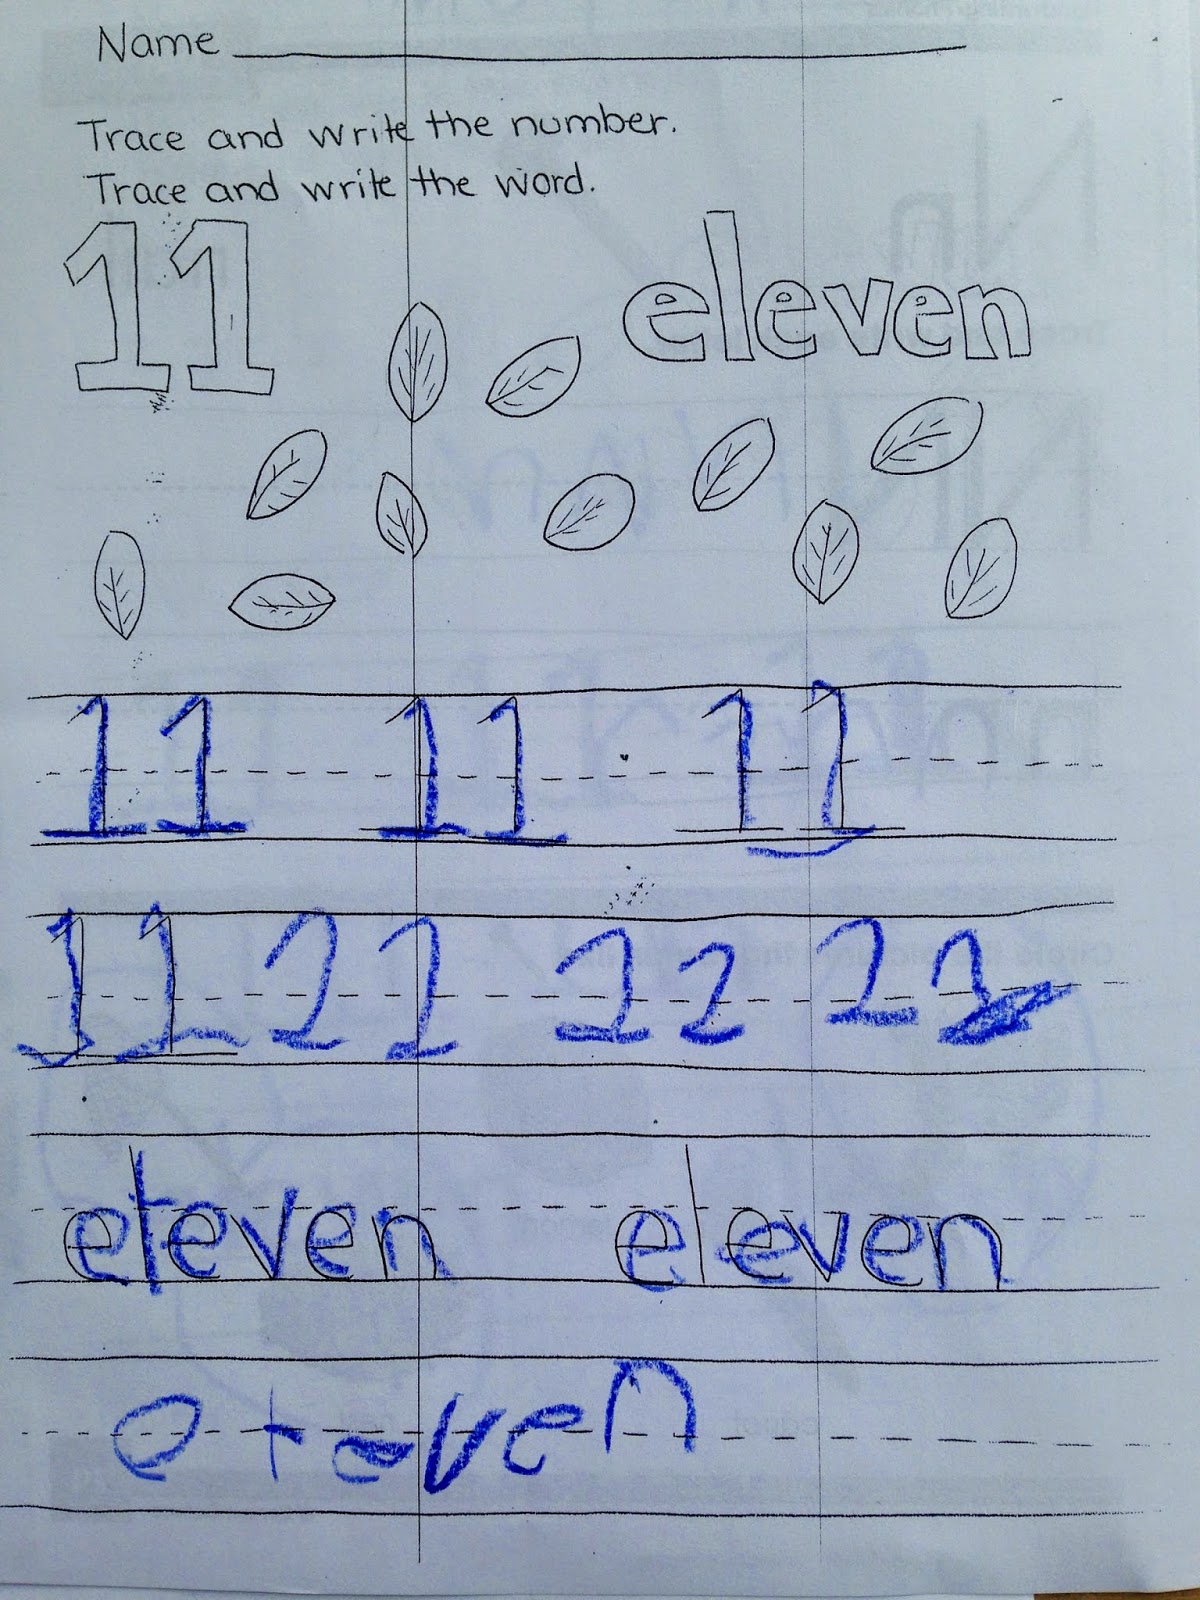 Name
Trace and write the number.
Trace and write the word.
11 eleven
11 11 11
11 11 11 11
eleven eleven
eteven